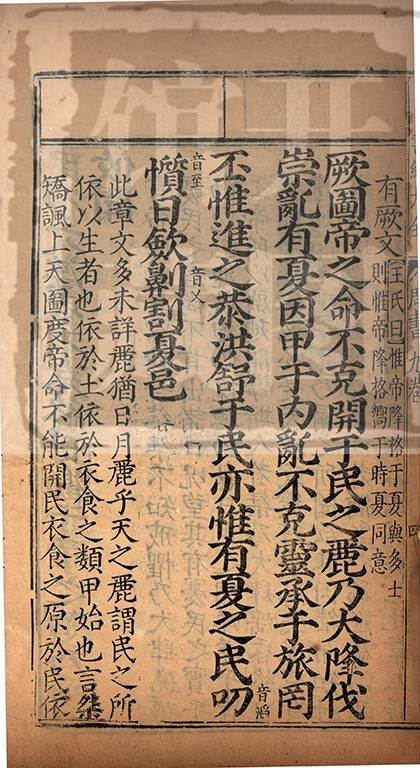 有厥文王氏曰惟帝降格于夏與多士
則惟帝降格嚮于時夏同意
厥圖帝之命不克開于民之麗乃大降伐
崇亂有夏因甲于內亂不克靈承于旅罔
丕惟進之恭洪舒于民亦惟有夏之民叨音滔
音至懫日欽劓音乂割夏邑
此章文多未詳麗猶日月麗乎天之麗謂民之所
依以生者也依於土依於衣食之類甲始也言桀
矯誣上天圖度帝命不能開民衣食之原於民依